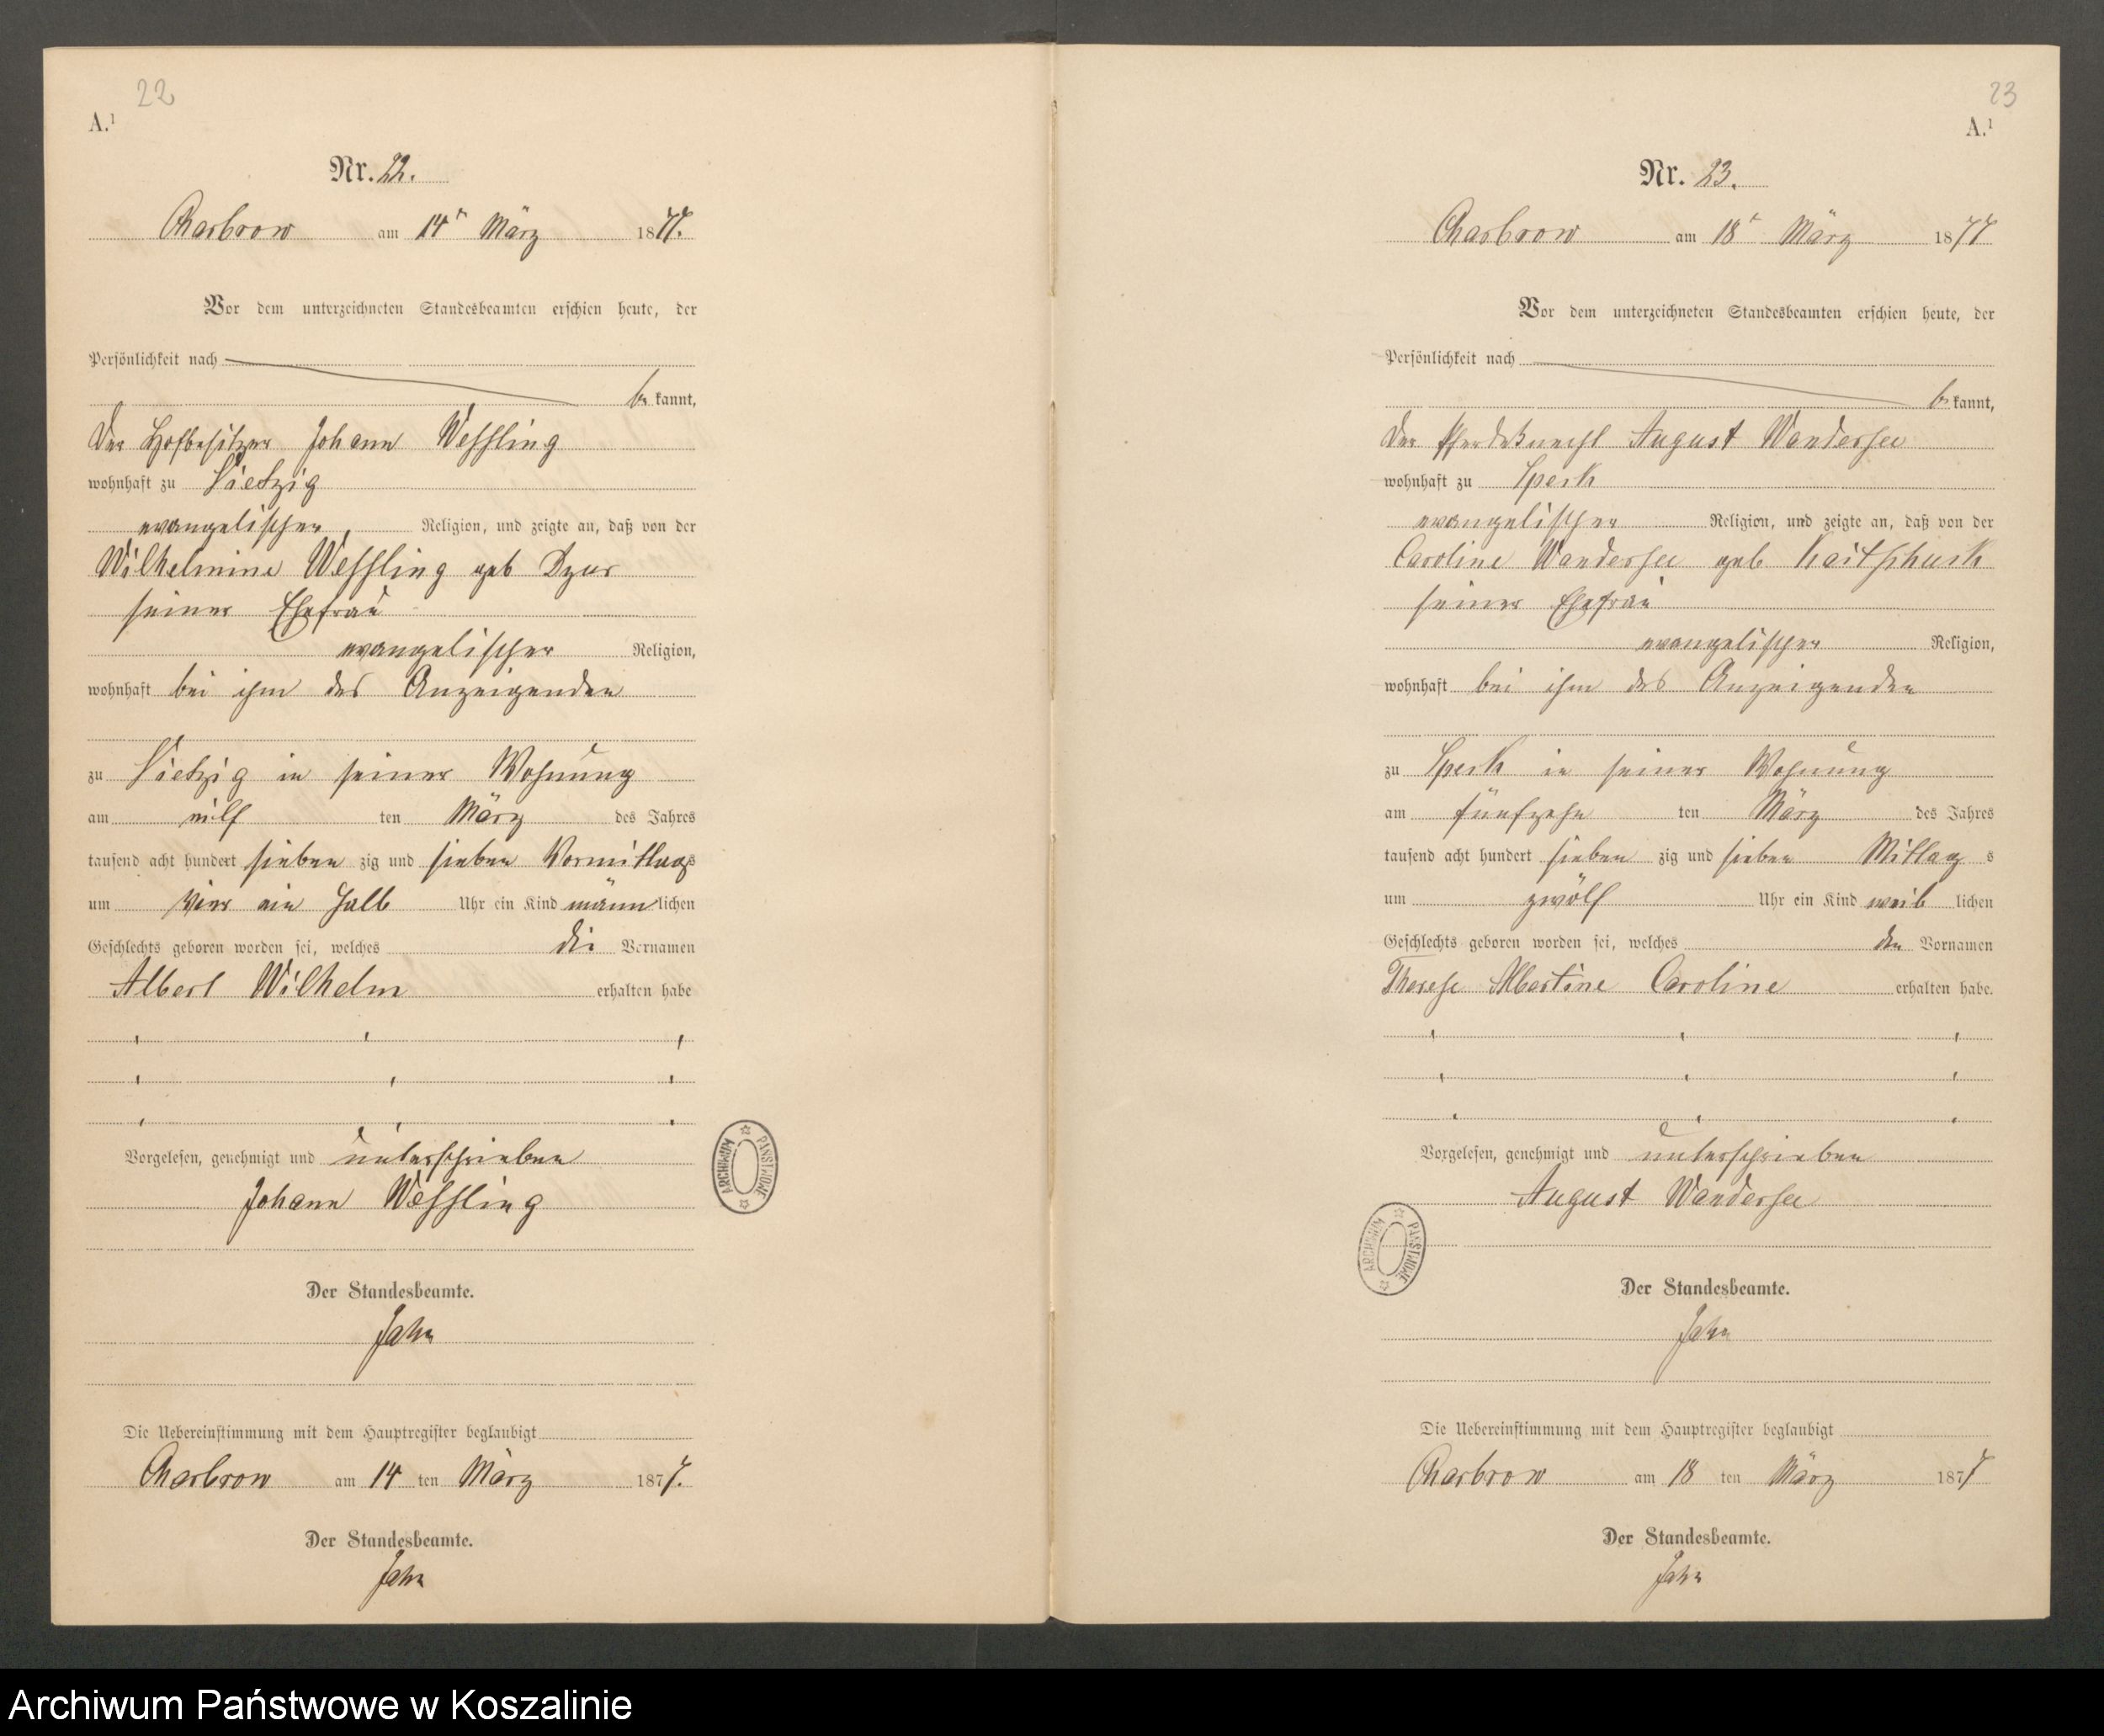 22
A.¹
Nr. 22.
Charbrow am 14t März 1877.
Vor dem unterzeichneten Standesbeamten erschien heute, der
Persönlichkeit nach
be kannt,
Der Hofbesitzer Johann Wessling
wohnhaft zu Vietzig
evangelischer Religion, und zeigte an, daß von der
Wilhelmine Wessling geb Dzur
seiner Ehefrau
evangelischer Religion,
wohnhaft bei ihm des Anzeigenden
zu Vietzig in seiner Wohnung
am eilf ten März des Jahres
tausend acht hundert sieben zig und sieben Vormittags
um vier ein halb Uhr ein Kind männ lichen
Geschlechts geboren worden sei, welches die Vornamen
Albert Wilhelm erhalten habe
Vorgelesen, genehmigt und unterschrieben
Johann Wessling
Der Standesbeamte.
Jahn
Die Uebereinstimmung mit dem Hauptregister beglaubigt
Charbrow am 14 ten März 1877.
Der Standesbeamte.
Jahn
ARCHIWUM PAŃSTWOWE
23
A.¹
Nr. 23.
Charbrow am 18t März 1877
Vor dem unterzeichneten Standesbeamten erschien heute, der
Persönlichkeit nach
be kannt,
Der Pferdeknecht August Wandersee
wohnhaft zu Speck
evangelischer Religion, und zeigte an, daß von der
Caroline Wandersee geb
seiner Ehefrau
evangelischer Religion,
wohnhaft bei ihm des Anzeigenden
zu Speck in seiner Wohnung
am fünfzehn ten März des Jahres
tausend acht hundert sieben zig und sieben Mittag s
um zwölf Uhr ein Kind weib lichen
Geschlechts geboren worden sei, welches den Vornamen
Therese Albertine Caroline erhalten habe.
Vorgelesen, genehmigt und unterschrieben
August Wandersee
ARCHIWUM PAŃSTWOWE
Der Standesbeamte.
Jahn
Die Uebereinstimmung mit dem Hauptregister beglaubigt
Charbrow am 18 ten März 1877
Der Standesbeamte.
Jahn
Archiwum Państwowe w Koszalinie